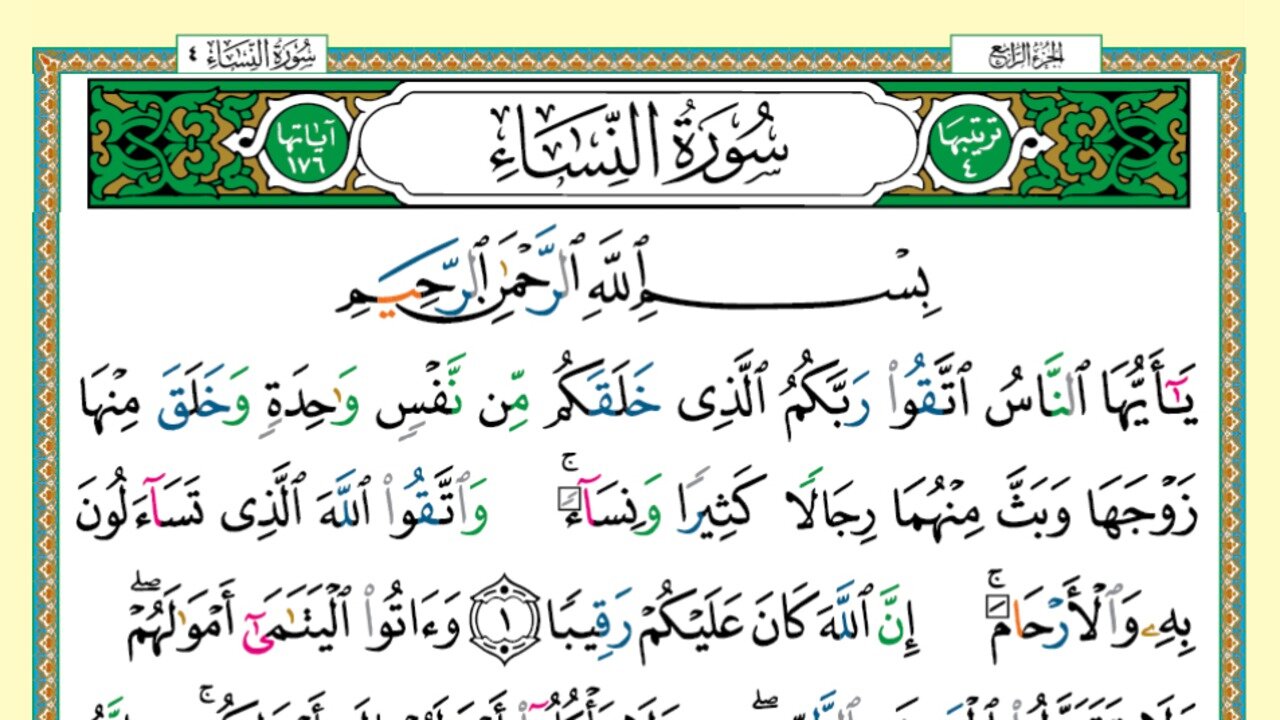 الجزء الرابع
سورة النساء ٤
ترتيبها ٤
سُورَةُ النِّسَاءِ
آياتها ١٧٦
بِسْمِ ٱللَّهِ ٱلرَّحْمَٰنِ ٱلرَّحِيمِ
يَٰٓأَيُّهَا ٱلنَّاسُ ٱتَّقُوا۟ رَبَّكُمُ ٱلَّذِى خَلَقَكُم مِّن نَّفْسٍ وَٰحِدَةٍ وَخَلَقَ مِنْهَا
زَوْجَهَا وَبَثَّ مِنْهُمَا رِجَالًا كَثِيرًا وَنِسَآءً ۚ وَٱتَّقُوا۟ ٱللَّهَ ٱلَّذِى تَسَآءَلُونَ
بِهِۦ وَٱلْأَرْحَامَ ۚ إِنَّ ٱللَّهَ كَانَ عَلَيْكُمْ رَقِيبًا ١ وَءَاتُوا۟ ٱلْيَتَٰمَىٰٓ أَمْوَٰلَهُمْ ۖ